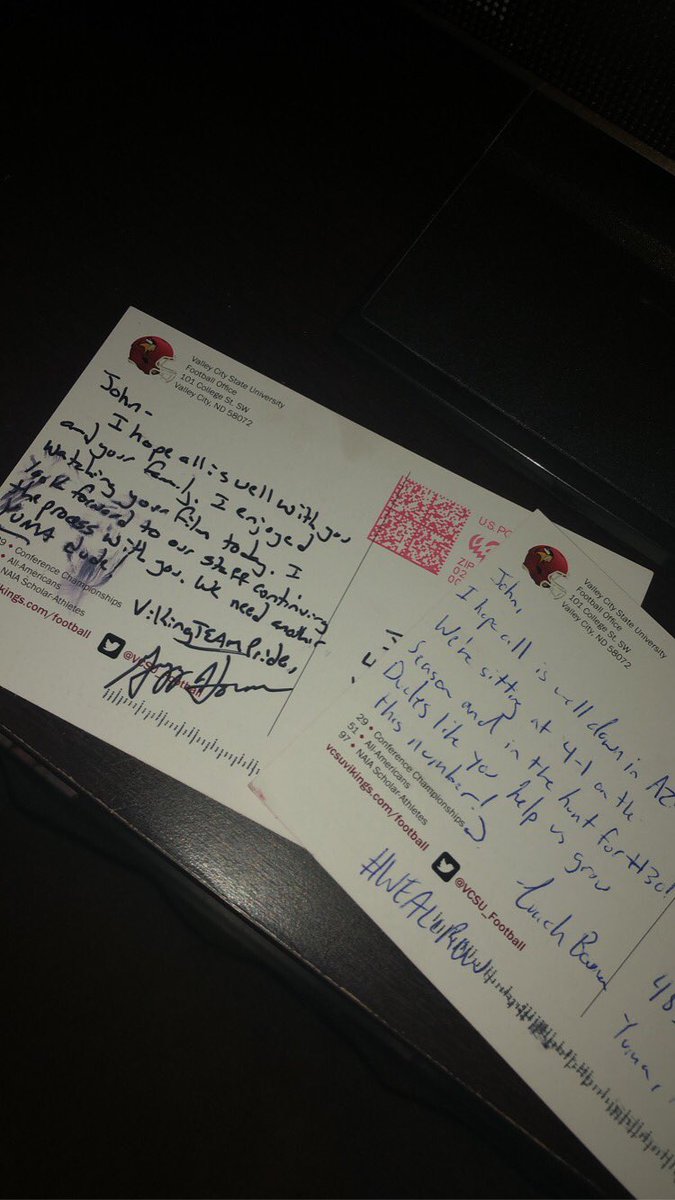 Valley City State University
Football Office
101 College St. SW
Valley City, ND 58072
John-
I hope all is well with you
and your family. I enjoyed
watching your film today. I
look forward to our staff continuing
the process with you. We need another
YUMA dude.
Viking TEAM Pride,
29 • Conference Championships
• All-Americans
NAIA Scholar-Athletes
kings.com/football
@VCSU_Football
U.S. PO
ZIP
02
Valley City State University
Football Office
101 College St. SW
Valley City, ND 58072
John,
I hope all is well down in AZ.
We're sitting at 4-1 on the
season and in the hunt for #30!
Dudes like you help us grow
this number!
Coach
29 • Conference Championships
51 • All-Americans
97 • NAIA Scholar-Athletes
vcsuvikings.com/football
@VCSU_Football
#WEALLROW
Yuma,